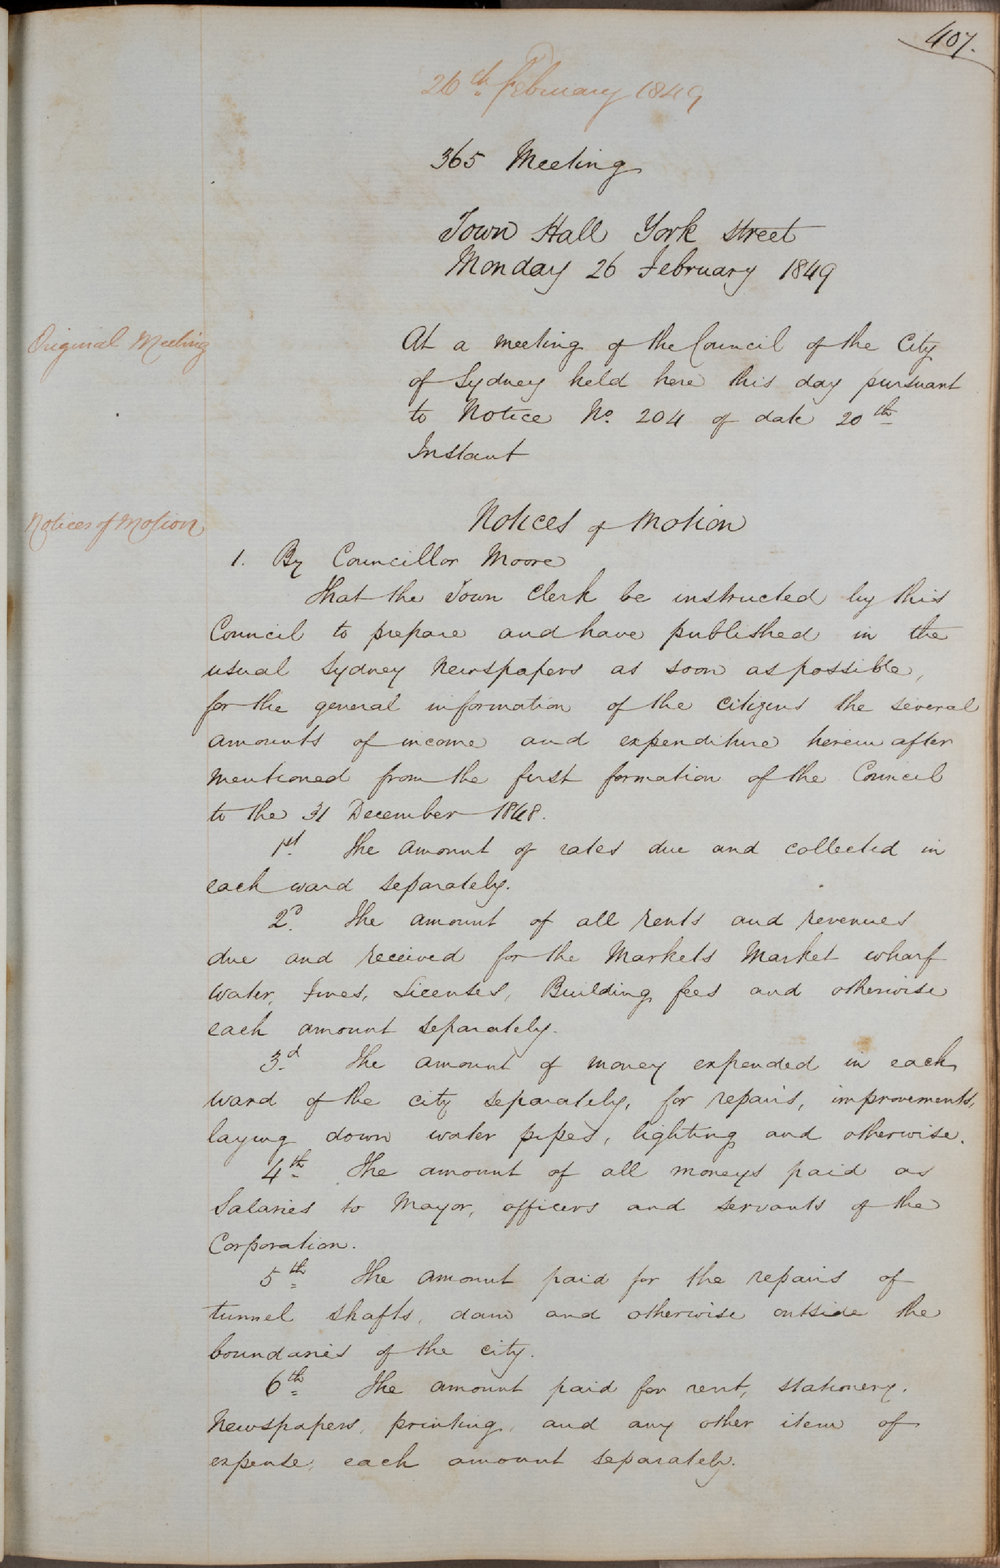 407.
26th February 1849
365 Meeting
Town Hall York Street
Monday 26 February 1849
Original Meeting
At a meeting of the Council of the City
of Sydney held here this day pursuant
to Notice No. 204 of date 20th
Instant
Notices of Motion
Notices of Motion
1. By Councillor Moore
That the Town Clerk be instructed by this
Council to prepare and have published in the
usual Sydney Newspapers as soon as possible,
for the general information of the citizens the several
amounts of income and expenditure herein after
mentioned from the first formation of the Council
to the 31 December 1848.
1st. The amount of rates due and collected in
each ward separately.
2d. The amount of all rents and revenues
due and received for the Markets Market wharf
Water, Fines, Licenses, Building fees and otherwise
each amount separately.
3d. The amount of money expended in each
ward of the city separately, for repairs, improvements,
laying down water pipes, lighting and otherwise.
4th. The amount of all moneys paid as
Salaries to Mayor, officers and servants of the
Corporation.
5th. The amount paid for the repairs of
tunnel shafts, dam and otherwise outside the
boundaries of the city.
6th. The amount paid for rent, stationery,
Newspapers, printing, and any other item of
expense, each amount separately.